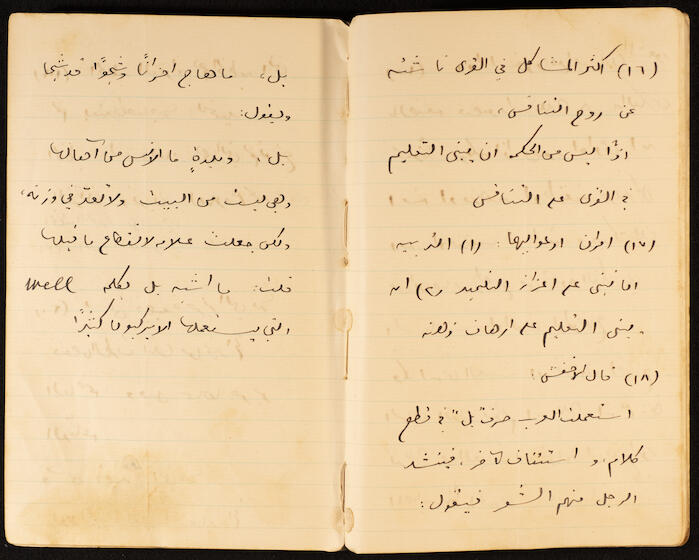 (١٦) اكثر المشاكل في القرى ناشئه
عن روح التنافس،
اذًا ليس من الحكمه ان يبنى التعليم
في القرى على التنافس
(١٧) امران ادعو اليهما: (١) التربيه
تبنى على اعزاز التلميذ (٢) ان
يبنى التعليم على ارهاف ذهنه
(١٨) قال الاخفش:
استعملت العرب حرف "بل" في قطع
كلام، و استئناف آخر، فينشد
الرجل منهم الشعر فيقول:
بل، ما هاج احزانًا وشجوًا قد شجا
ويقول:
بل، وبلدةٍ ما الانس من آهالها
وهي ليست من البيت ولا تعدّ في وزنه،
ولكن جعلت علامه لانقطاع ما قبلها
قلت: ما اشبه بل بكلمه well
التي يستعملها الاميركيون كثيرًا